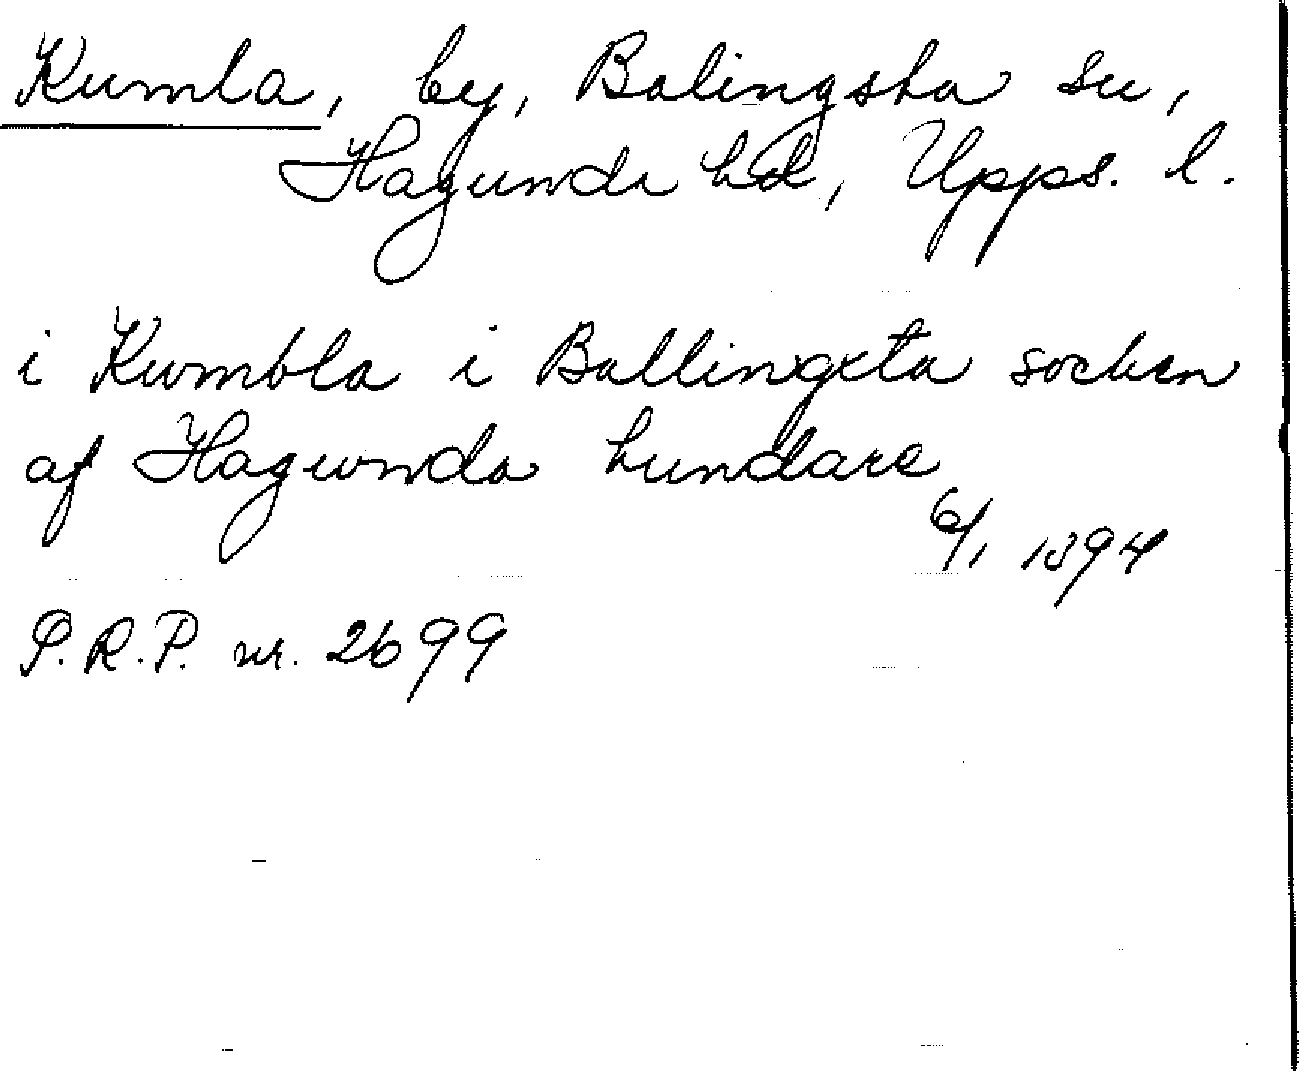 Kumla, by, Balingsta sn,
Hagunda hd, Upps. l.
i Kwmbla i Ballingxta socken
af Hagwnda hundare
6/1 1394
S.R.P. nr. 2699